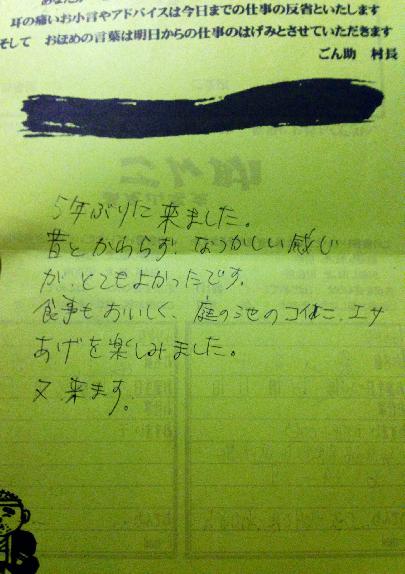 耳の痛いお小言やアドバイスは今日までの仕事の反省といたします
そして　おほめの言葉は明日からの仕事のはげみとさせていただきます
ごん助　村長
5年ぶりに来ました。
昔とかわらず、なつかしい感じ
が、とてもよかったです。
食事もおいしく、庭の池のコイに、エサ
あげを楽しみました。
又、来ます。